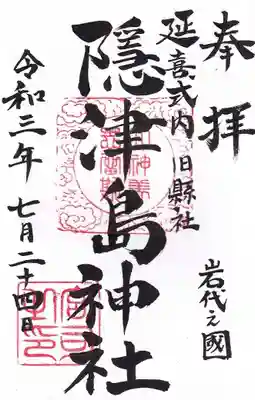 奉拝
岩代之國
延喜式内旧縣社
隠津島神社
令和三年七月二十四日